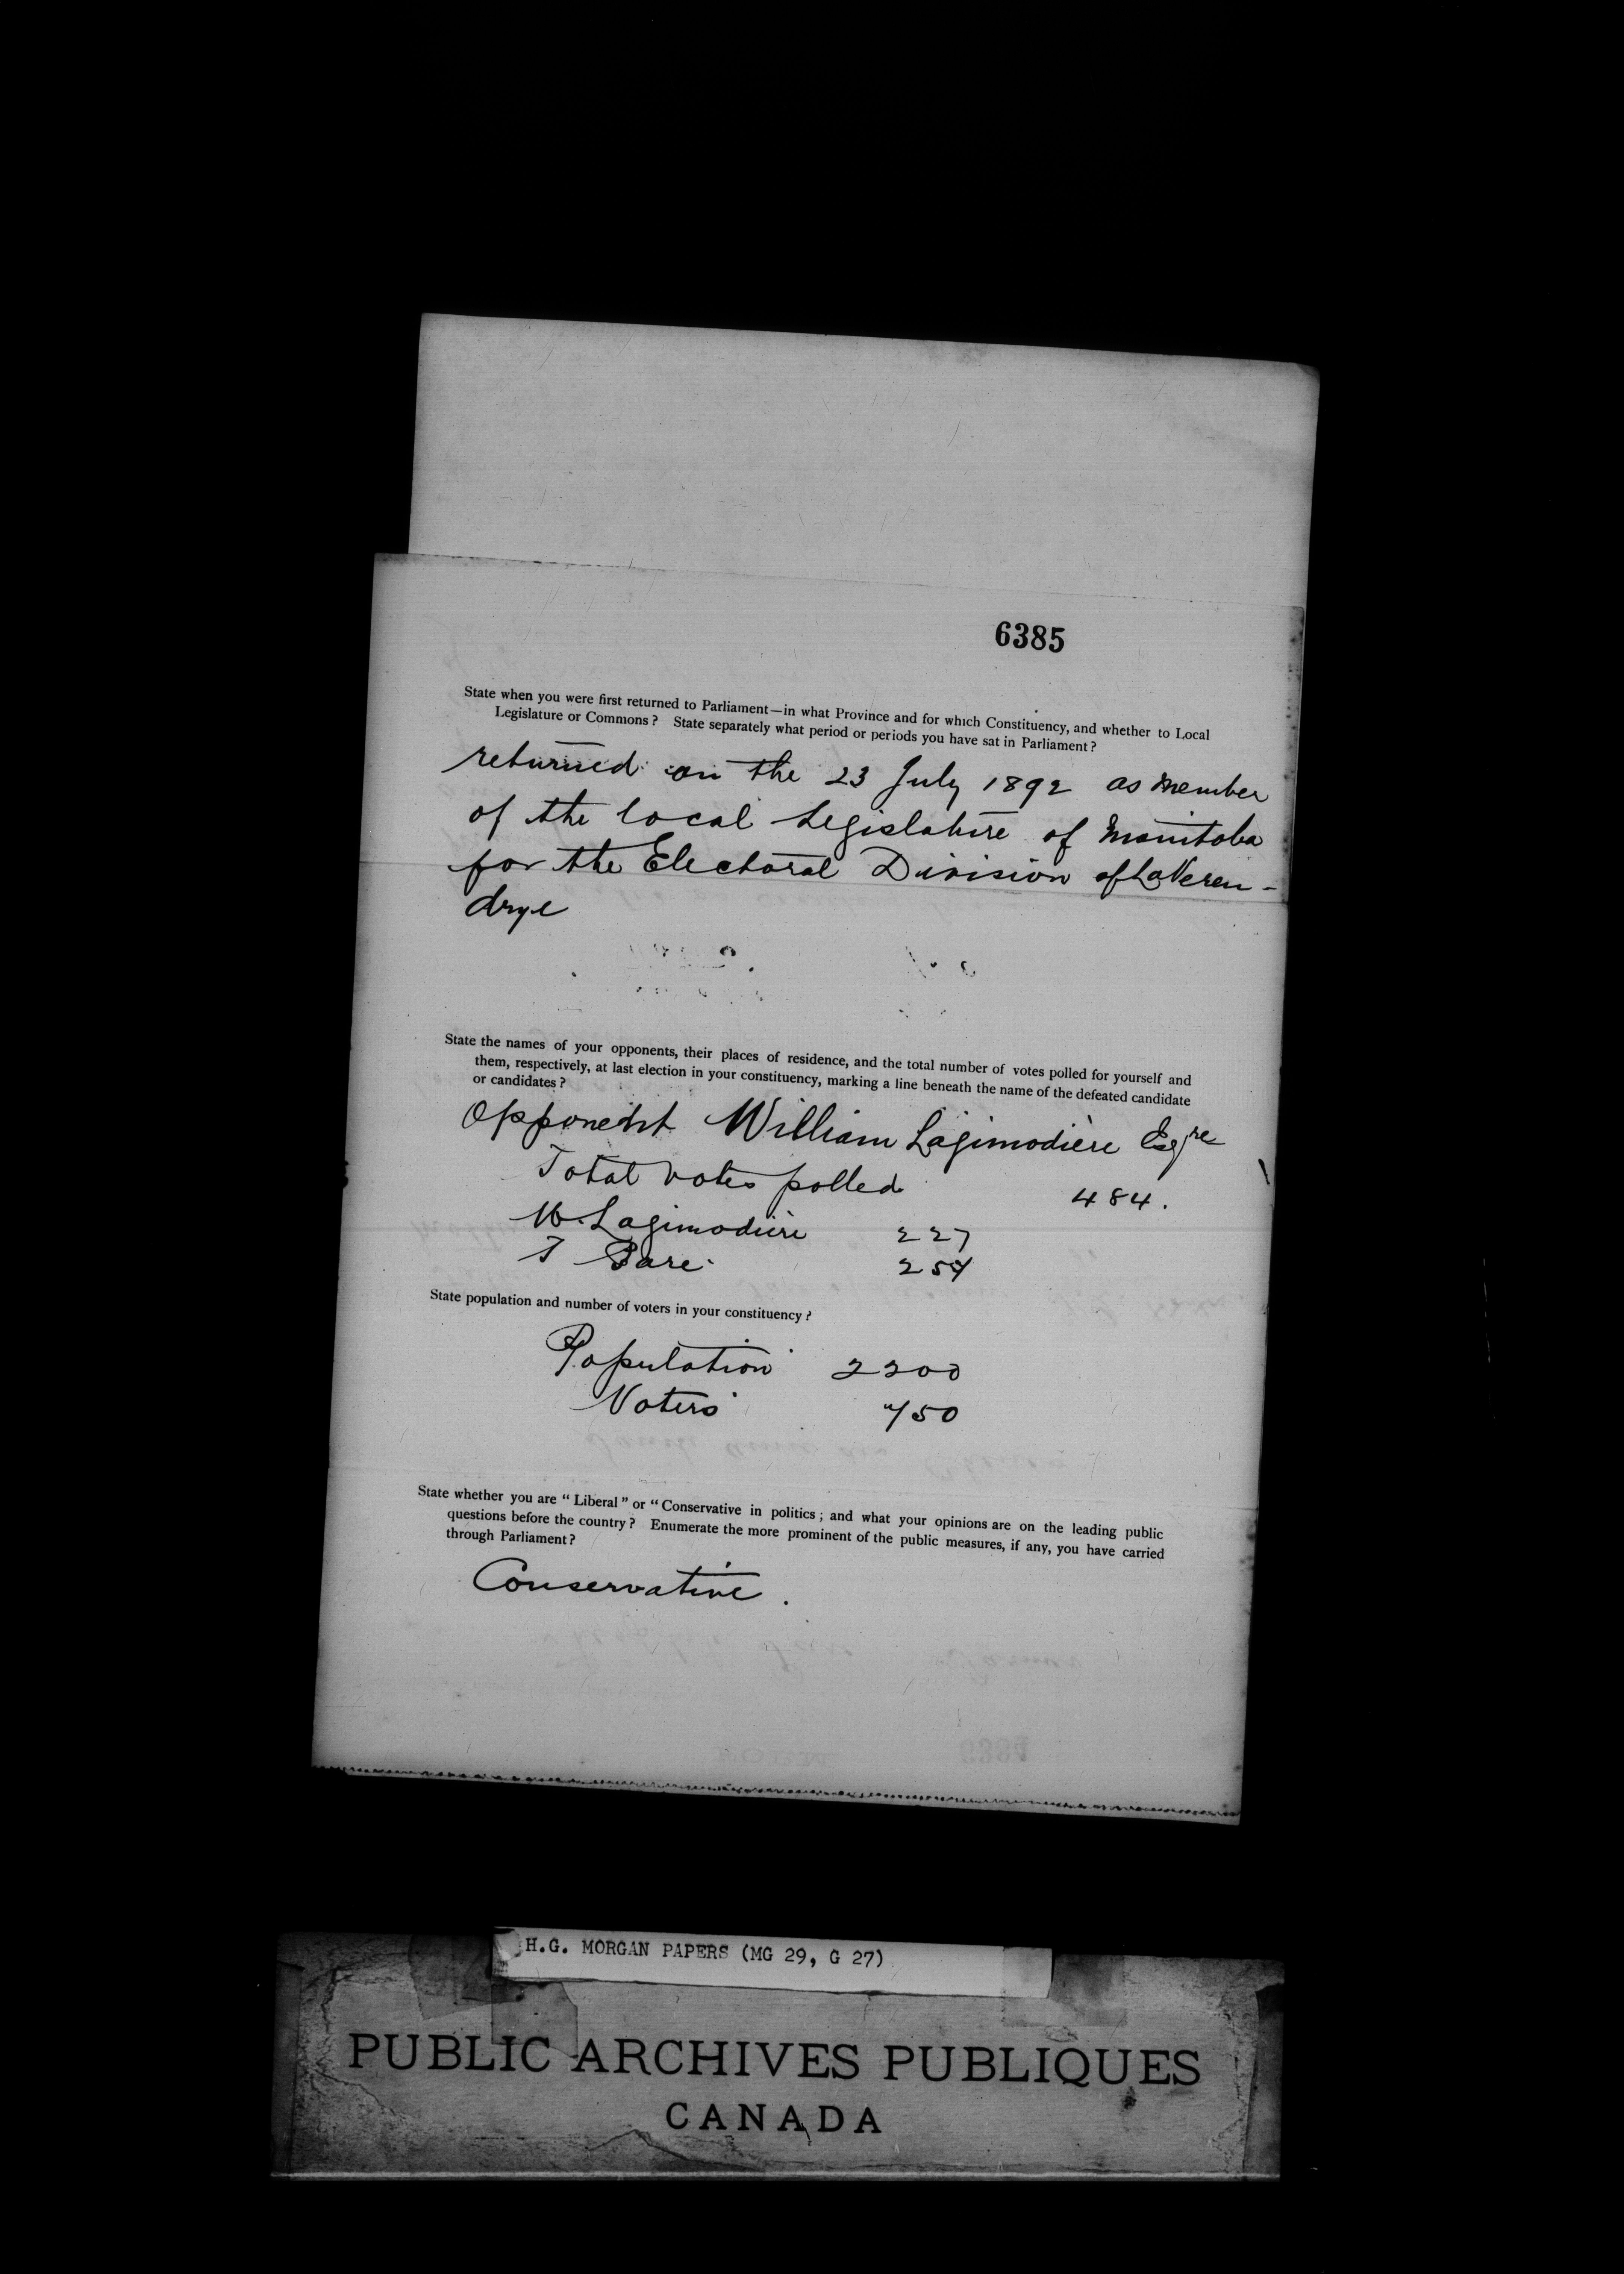 6385
State when you were first returned to Parliament—in what Province and for which Constituency, and whether to Local
Legislature or Commons? State separately what period or periods you have sat in Parliament?
returned on the 23 July 1892 as member
of the local Legislature of Manitoba
for the Electoral Division of LaVeren-
drye
State the names of your opponents, their places of residence, and the total number of votes polled for yourself and
them, respectively, at last election in your constituency, marking a line beneath the name of the defeated candidate
or candidates?
Opponent William Lagimodière Esqre
Total votes polled 484.
W. Lagimodière 227
T Paré 257
State population and number of voters in your constituency?
Population 2200
Voters 750
State whether you are "Liberal" or "Conservative in politics; and what your opinions are on the leading public
questions before the country? Enumerate the more prominent of the public measures, if any, you have carried
through Parliament?
Conservative.
H.G. MORGAN PAPERS (MG 29, G 27)
PUBLIC ARCHIVES PUBLIQUES
CANADA